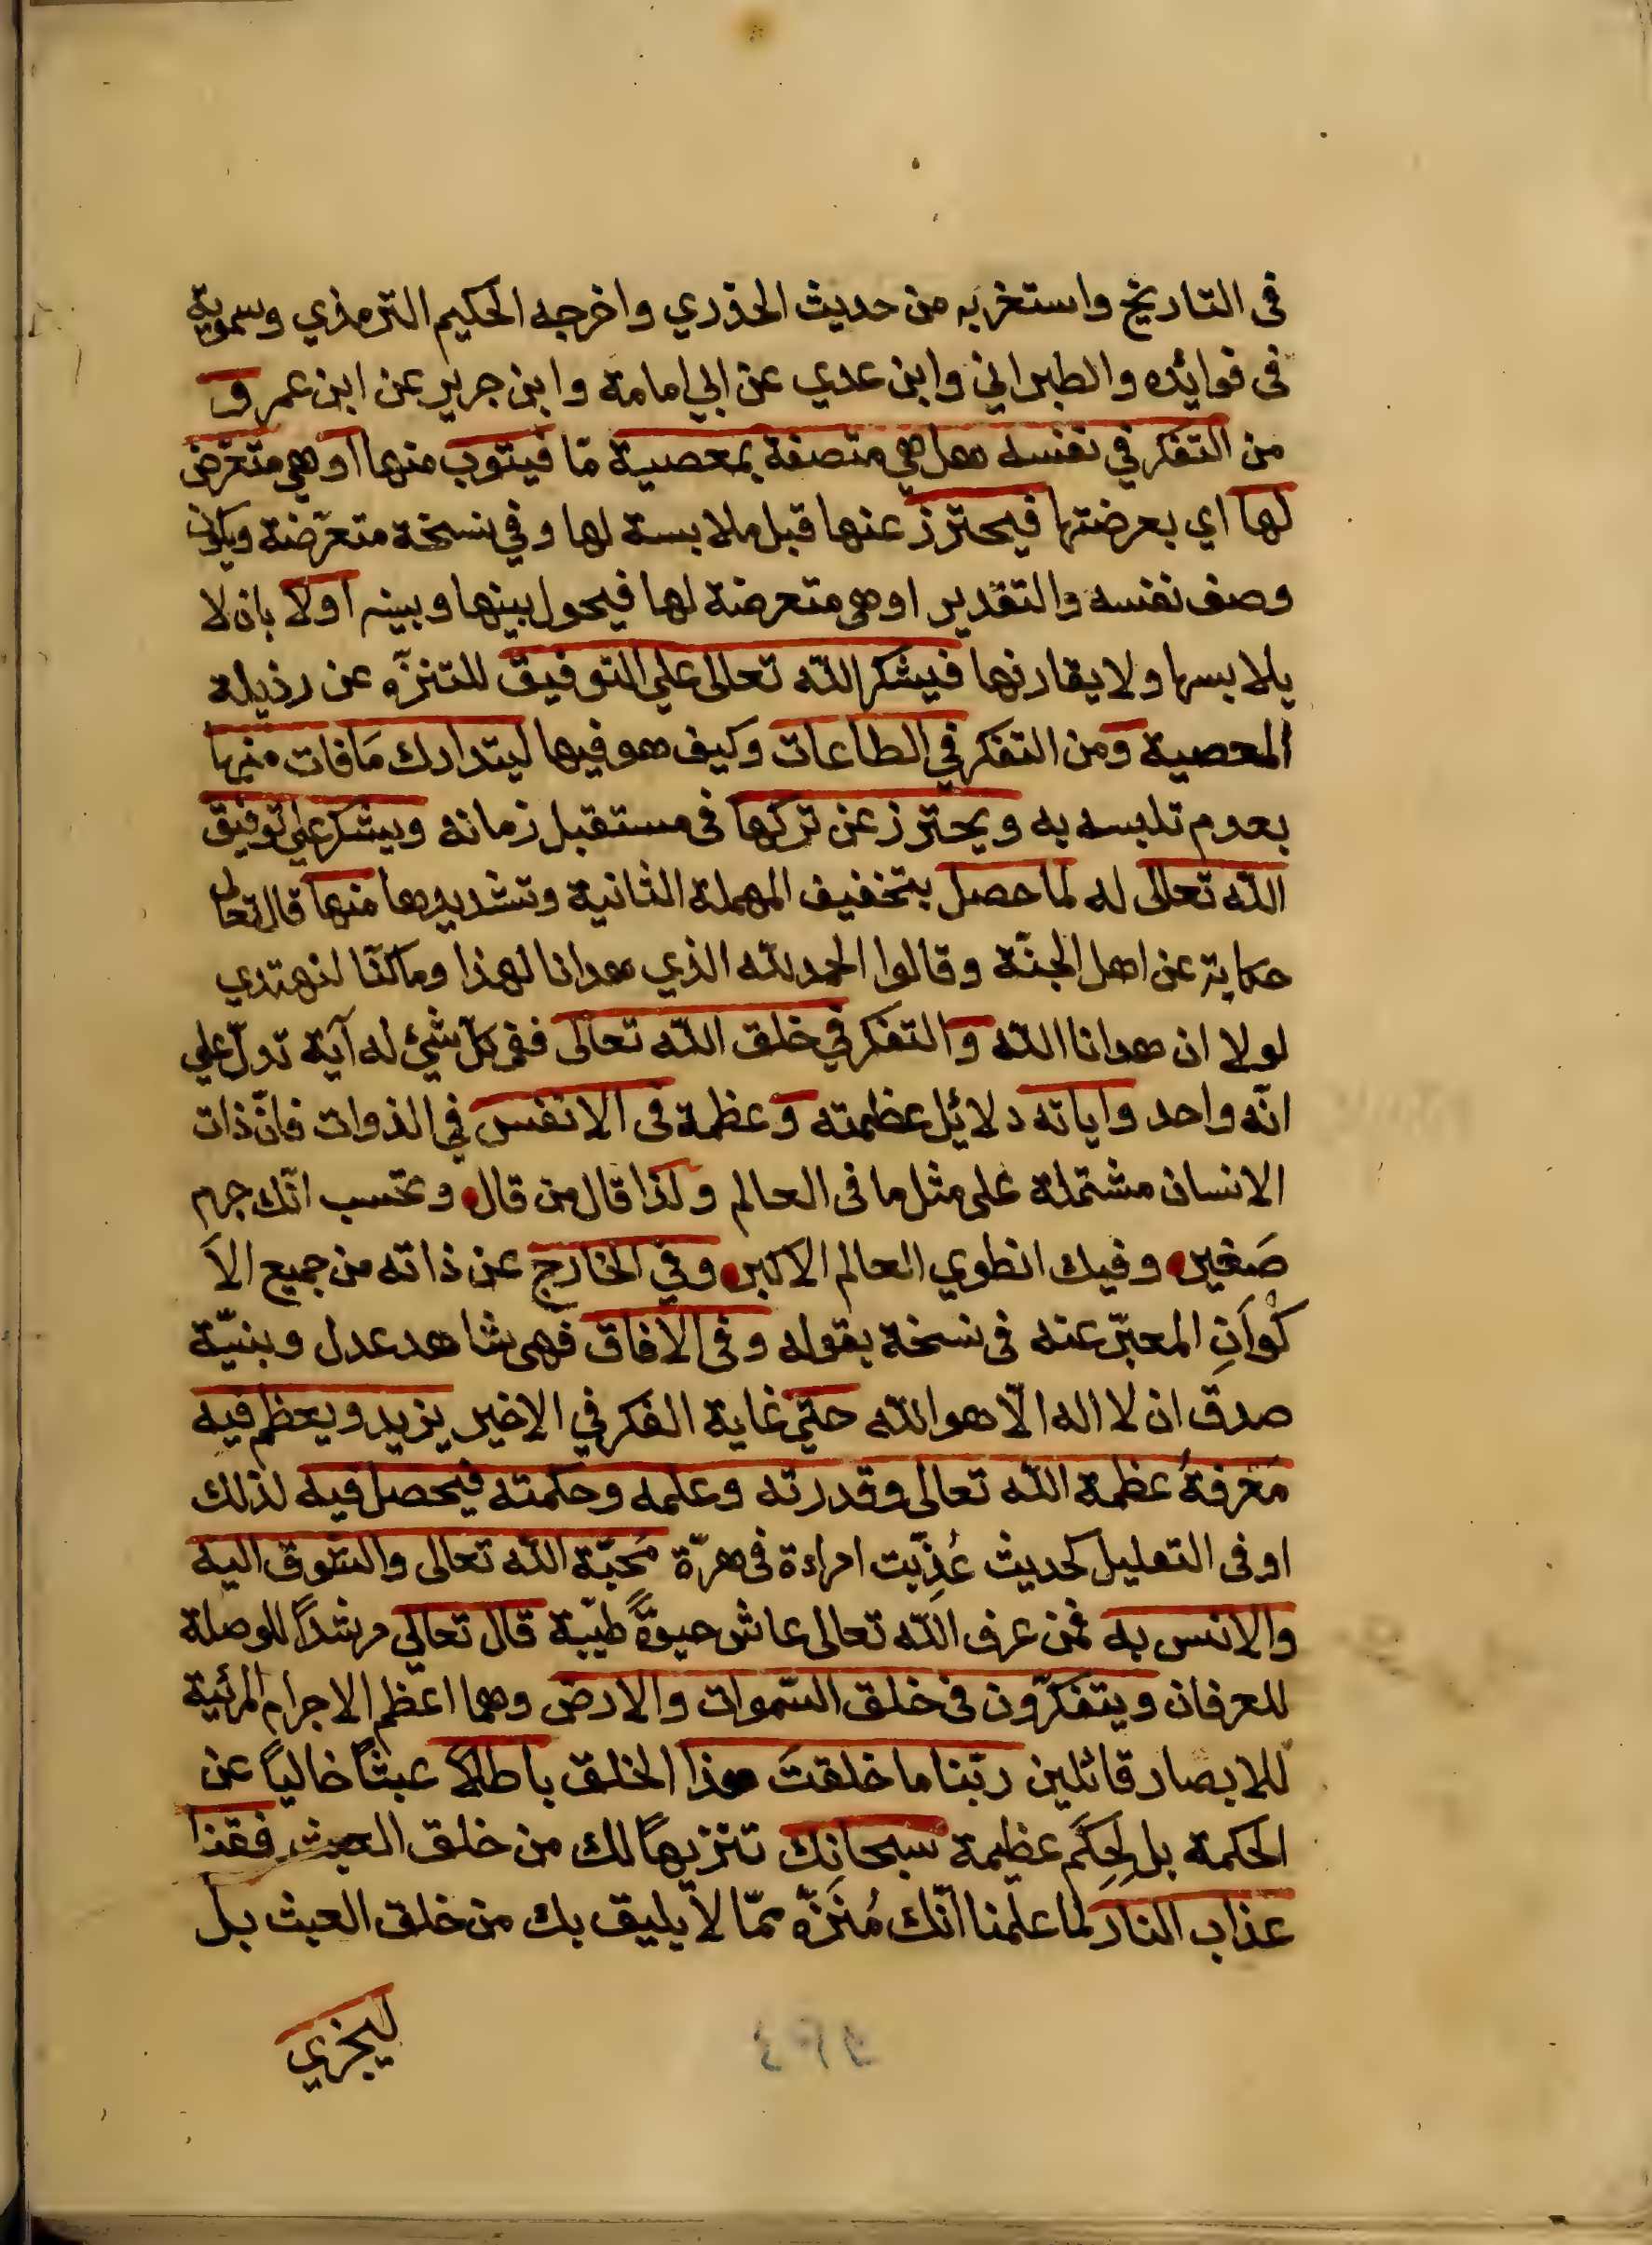 في التاريخ واستغربه من حديث الخدري واخرجه الحكيم الترمذي وسموية
في فوائده والطبراني وابن عدي عن ابي امامة وابن جرير عن ابن عمر و
من التفكر في نفسه هل هي متصفة بمعصية مّا فيتوب منها او هي متعرّض
لها اي بعرضتها فيحترز عنها قبل ملابسة لها وفي نسخة متعرّضة ويكون
وصف نفسه والتقدير او هي متعرضة لها فيحول بينها وبينه اولا بان لا
يلابسها ولا يقارنها فيشكر الله تعالى علي التوفيق للتنزّه عن رذيلة
المعصية ومن التفكر في الطاعات وكيف هو فيها ليتدارك مَا فات منها
بعدم تلبسه به ويحترز عن تركها في مستقبل زمانه ويشكر علي توفيق
الله تعالى له لما حصل بتخفيف المهملة الثانية وتشديدها منها قال تعالى
حكاية عن اهل الجنّة وقالوا الحمد لله الذي هدانا لهذا وما كنّا لنهتدي
لولا ان هدانا الله والتفكر في خلق الله تعالى ففي كلّ شئ له آية تدلّ علي
انّه واحد واياته دلائل عظمته وعظمة في الانفس في الذوات فانّ ذات
الانسان مشتملة على مثل ما في العالم ولذا قال من قال وتحسب انّك جرم
صَغير وفيك انطوي العالم الاكبر وفي الخارج عن ذاته من جميع الاَ
كْوانِ المعبّر عنه في نسخة بقوله وفي الافاق فهي شاهد عدل وبنيّة
صدق ان لا اله الّا هو الله حتي غاية الفكر في الاخير يزيد ويعظم فيه
مَعْرفةُ عظمة الله تعالى وقدرته وعلمه وحكمته فيحصل فيه لذلك
او في التعليل كحديث عُذِّبت امراءة في هرّة مَحبّة الله تعالى والشوق اليه
والانس به فمن عرف الله تعالى عاش حيوةً طيّبة قال تعالي مرشداً للوصلة
للعرفان ويتفكرّون في خلق السّموات والارض وهما اعظم الاجرام المرئية
للابصار قائلين ربّنا ما خلقتَ هذا الخلق باطلاً عبثاً خالياً عن
الحكمة بل لِحِكَم عظيمة سبحانك تنزيهاً لك من خلق العبث فقنا
عذاب النار لما علمنا انّك مُنَزّه عمّا لا يليق بك من خلق العبث بل
ليجزي